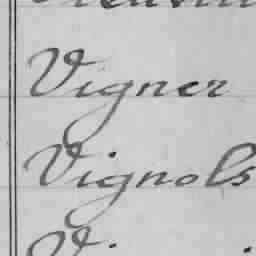 Vigner
Vignols